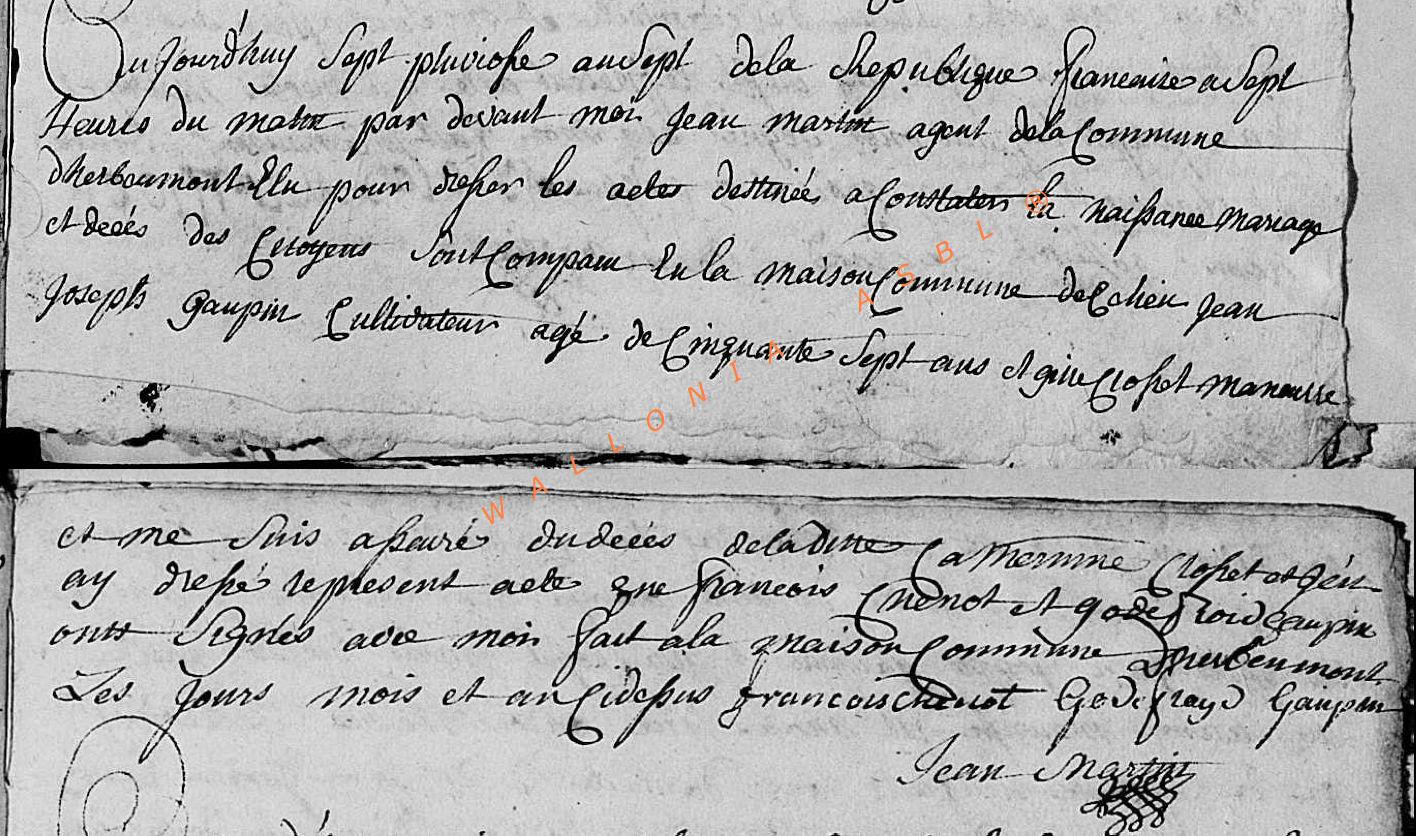 Aujourd'huy Sept pluviose an Sept dela Republique francaise a Sept
Heures du matin par devant moi Jean martin agent dela Commune
dherbeumont Elu pour dresser les actes destinés a Constater la naissance mariage
et decés des Citoyens Sont Comparu En la maison Commune de Jean
Joseph Gaupin Cultivateur agé de Cinquante Sept ans et Closset manouvre
et me Suis assuré du decés dela ditte Catherinne Closset et J'en
ay dressé le present acte que francois Chenot et godefroid Gaupin
ont Signés avec moi fait a la maison Commune Dherbeumont
Les Jours mois et an Cidessus francois Chenot Godefroyd Gaupin
Jean Martin
WALLONIA ASBL ®